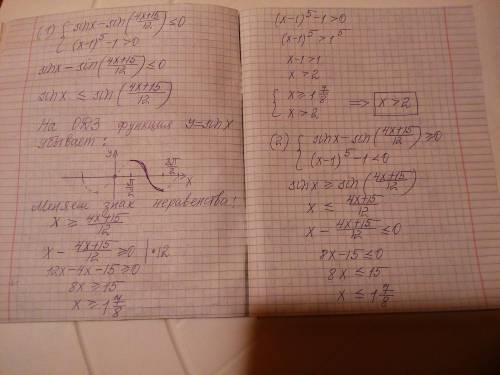 (1) { sinx - sin(4x+15/12) ≤ 0
(x-1)⁵ - 1 > 0
sinx - sin(4x+15/12) ≤ 0
sinx ≤ sin(4x+15/12)
На ОДЗ функция y=sinx
убывает:
y
π/2 3π/2 x
Меняем знак неравенства:
x ≥ 4x+15/12
x - 4x+15/12 ≥ 0 | •12
12x-4x-15 ≥ 0
8x ≥ 15
x ≥ 1 7/8
(x-1)⁵ - 1 > 0
(x-1)⁵ > 1⁵
x-1 > 1
x > 2
{ x ≥ 1 7/8
x > 2 ⟹ x > 2
(2) { sinx - sin(4x+15/12) ≥ 0
(x-1)⁵ - 1 < 0
sinx ≥ sin(4x+15/12)
x ≤ 4x+15/12
x - 4x+15/12 ≤ 0
8x-15 ≤ 0
8x ≤ 15
x ≤ 1 7/8